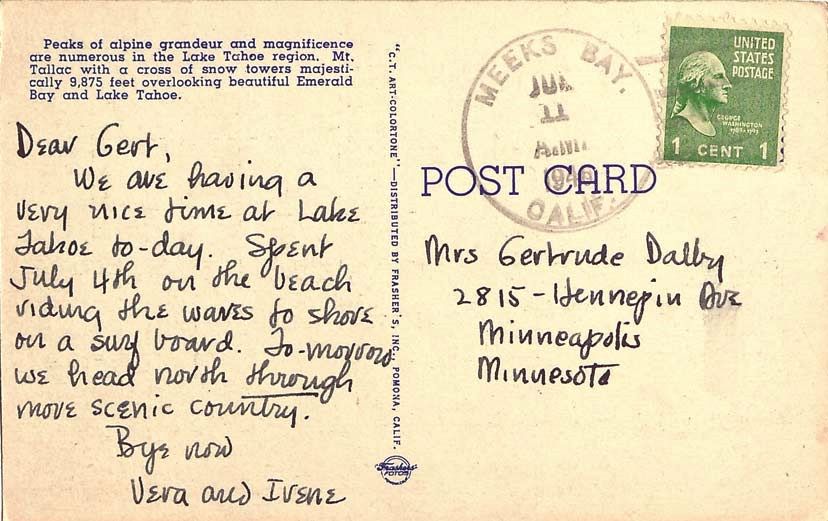 Peaks of alpine grandeur and magnificence
are numerous in the Lake Tahoe region. Mt.
Tallac with a cross of snow towers majesti-
cally 9,875 feet overlooking beautiful Emerald
Bay and Lake Tahoe.
Dear Gert,
We are having a
very nice time at Lake
Tahoe to-day. Spent
July 4th on the beach
riding the waves to shore
on a surf board. To-morrow
we head north through
more scenic country.
Bye now
Vera and Irene
"C.T. ART-COLORTONE"—DISTRIBUTED BY FRASHER'S, INC., POMONA, CALIF.
Frashers
FOTOS
MEEKS BAY,
11
CALIF.
UNITED
STATES
POSTAGE
GEORGE
WASHINGTON
1 CENT 1
POST CARD
Mrs Gertrude Dalby
2815-Hennepin Ave
Minneapolis
Minnesota